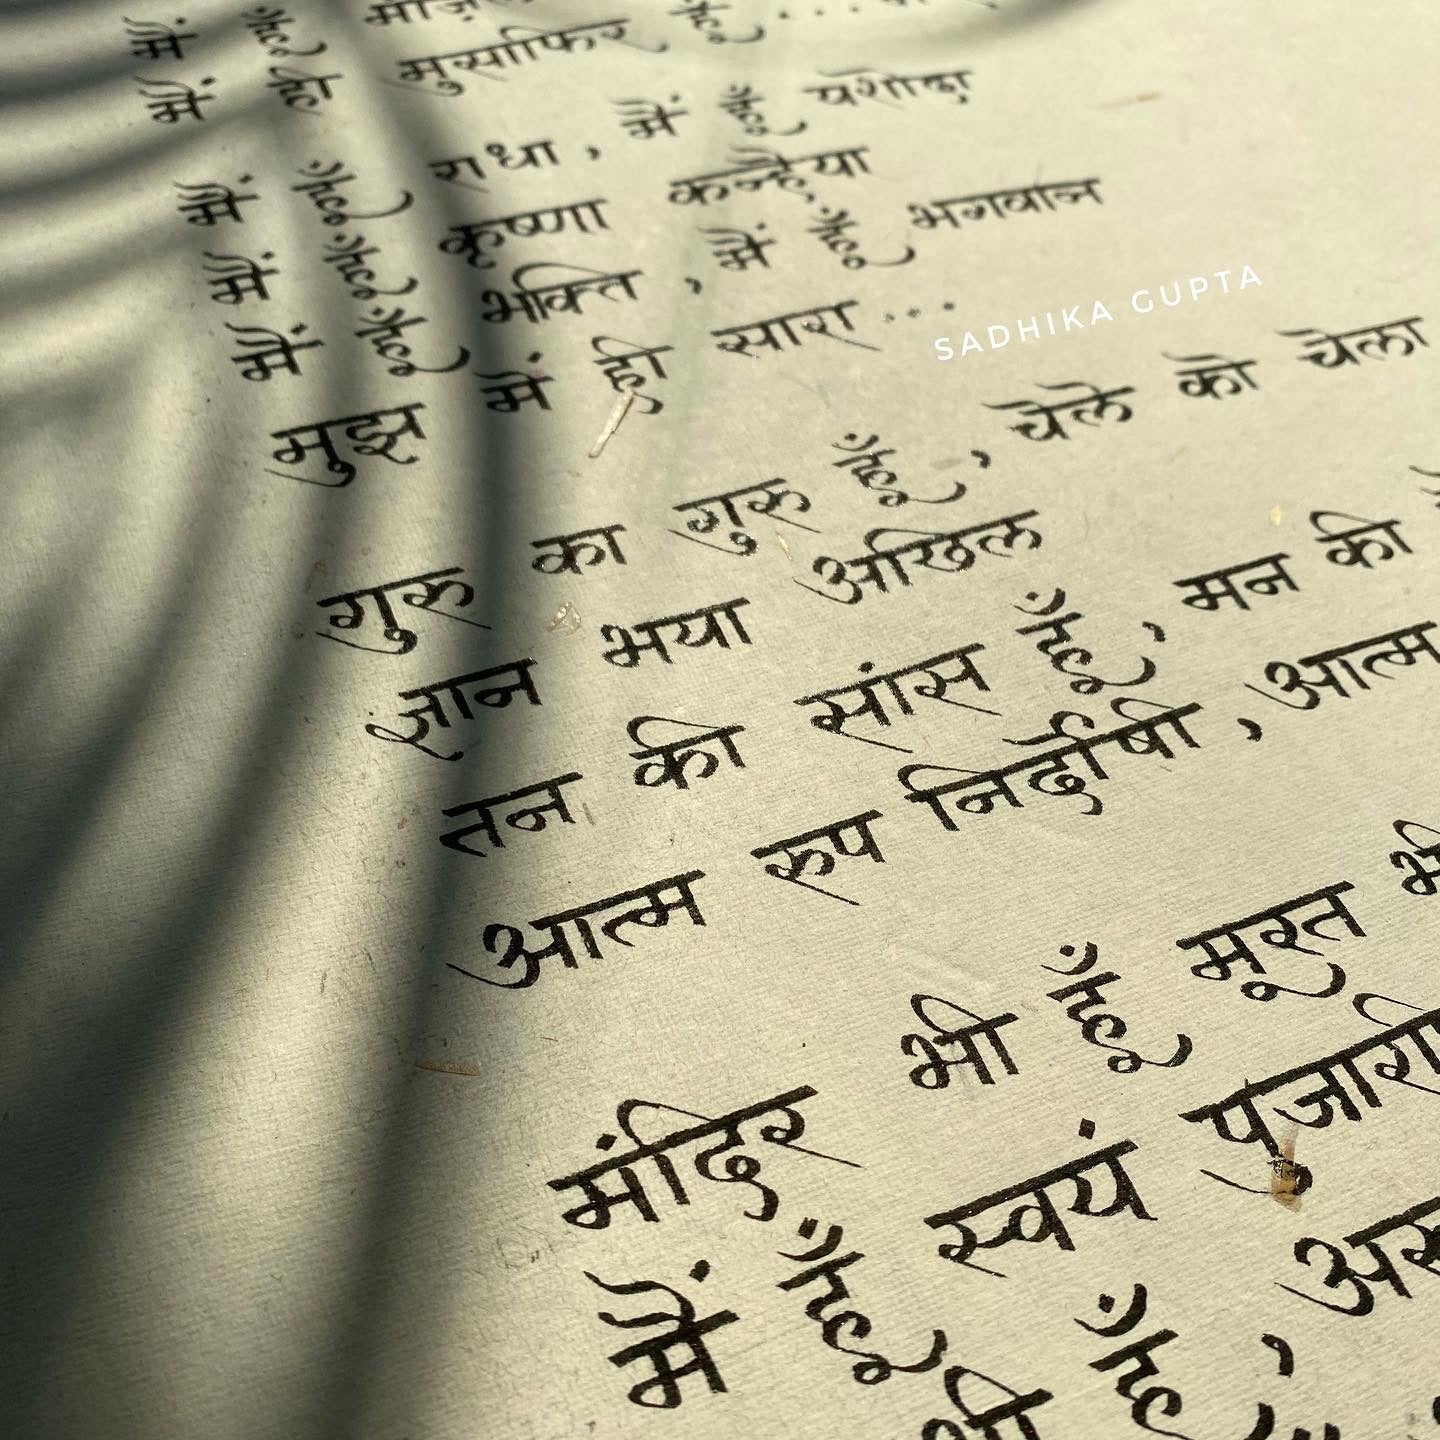 मैं हूँ
मैं ही मुसाफिर, हूँ ...
मैं हूँ राधा, मैं हूँ यशोदा
मैं हूँ कृष्णा कन्हैया
मैं हूँ भक्ति, मैं हूँ भगवान
मुझ में ही सारा...
SADHIKA GUPTA
गुरु का गुरु हूँ, चेले को चेला
ज्ञान भया अखिल
तन की सांस हूँ, मन की
आत्म रुप निर्दोषी, आत्म
मंदिर भी हूँ मूरत भी
मैं हूँ स्वयं पुजारी
भी हूँ,